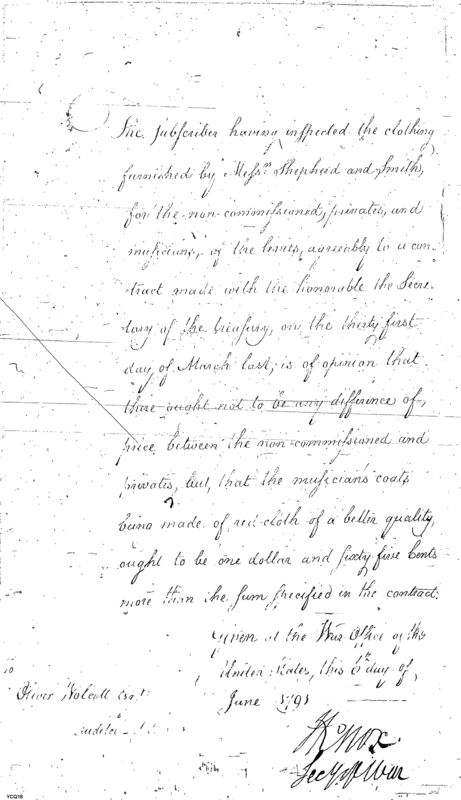 The subscriber having inspected the clothing
furnished by Messrs Shepherd and Smith,
for the non-commissioned, privates, and
musicians, of the levies, agreeably to a con
tract made with the honorable the Secre
tary of the treasury, on the thirty first
day of March last, is of opinion that
there ought not to be any difference of,
price between the non-commissioned and
privates, but, that the musician's coats
being made of red cloth of a better quality,
ought to be one dollar and sixty five Cents
more than the sum specified in the contract.
Given at the War Office of the
United States, this 6th day of,
June 1791
HKnox.
Secy of War
To
Oliver Wolcott Esqr
auditor
YCQ18